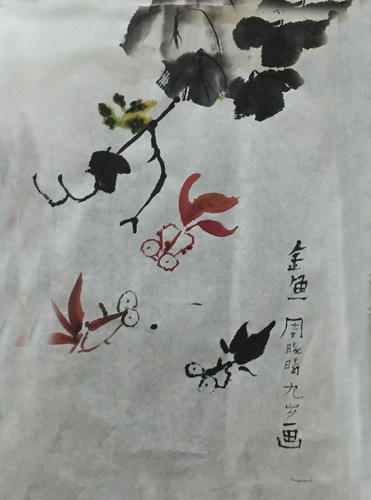 金鱼 周晓晴九岁画